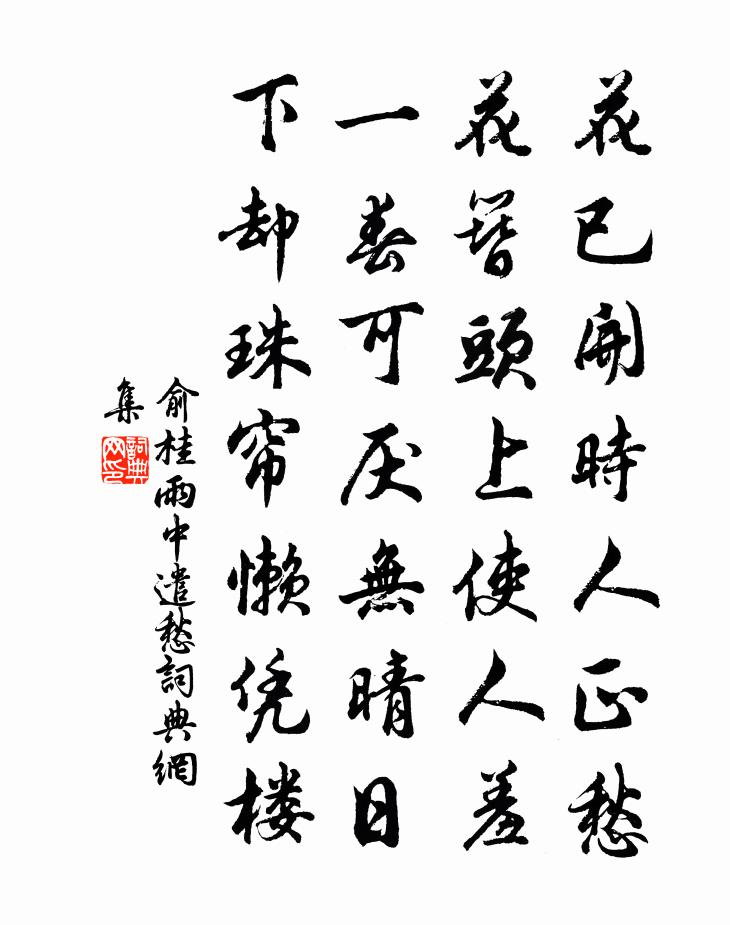 花已開時人正愁
花簪頭上使人羞
一春可厌無晴日
下却珠帘懒凭楼
俞桂雨中遣愁詞典網
集
詞典
网印